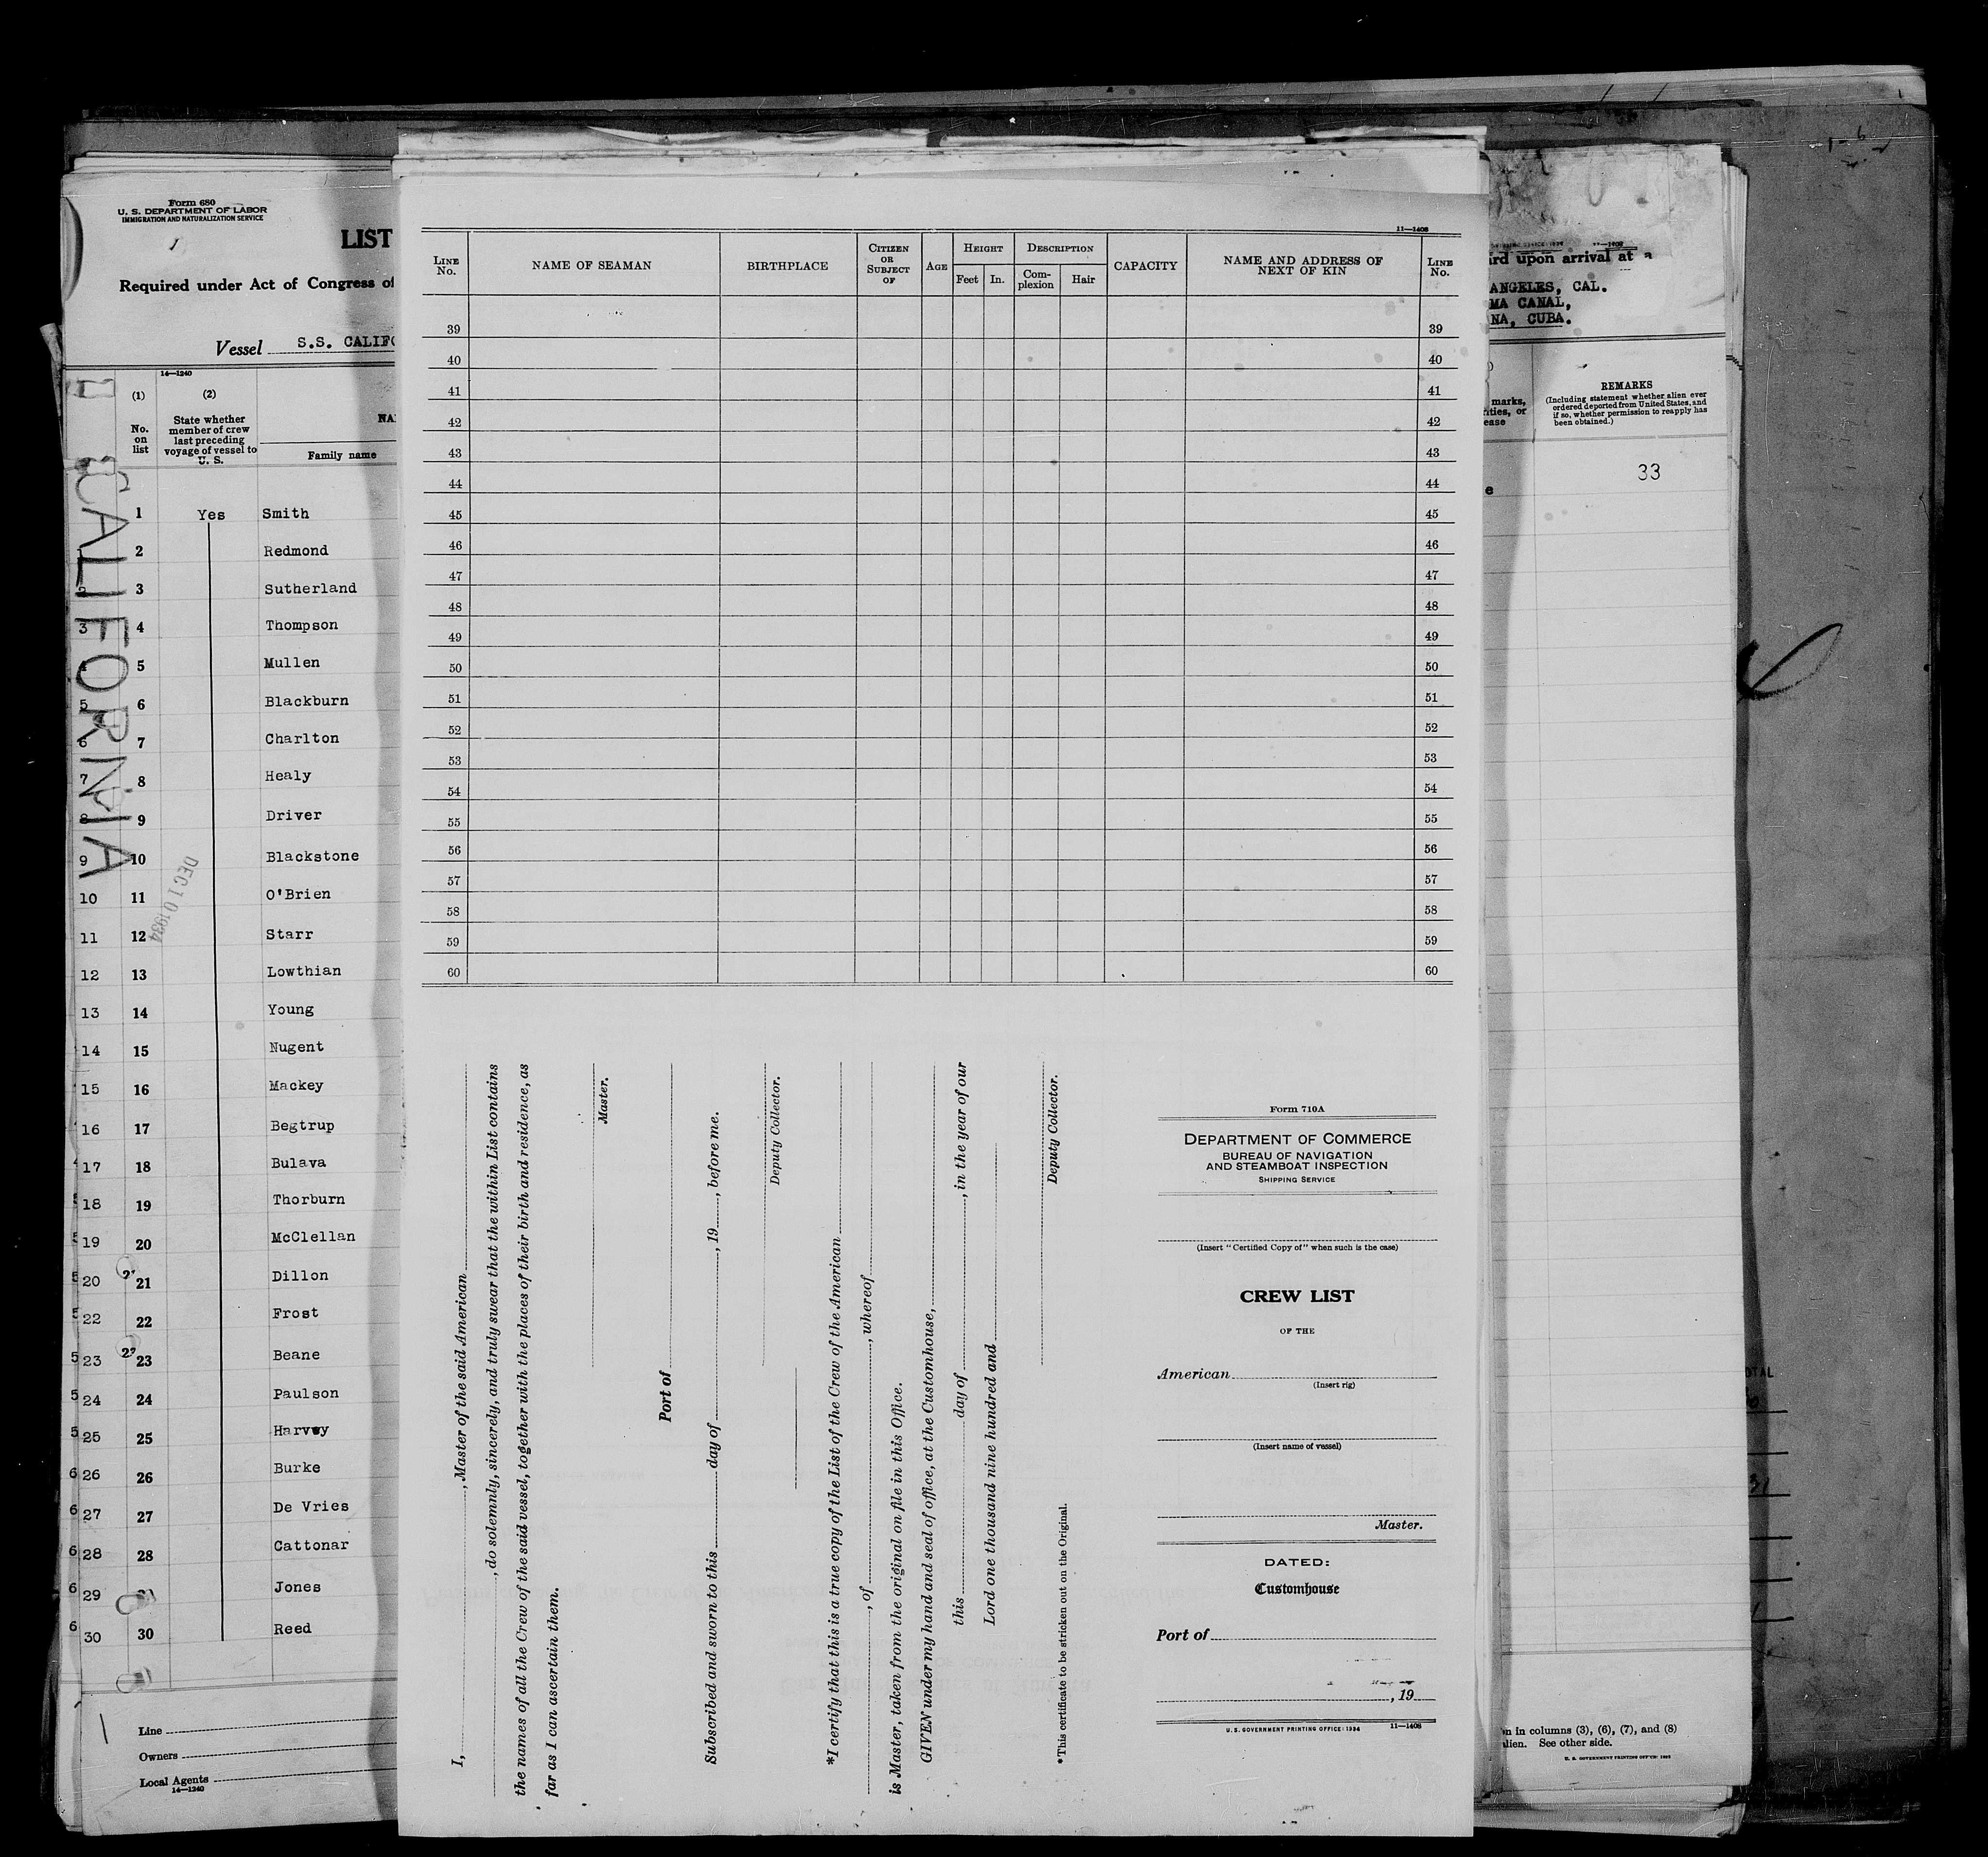 Form 680
U. S. DEPARTMENT OF LABOR
IMMIGRATION AND NATURALIZATION SERVICE
1
LIST
Required under Act of Congress of
Vessel S.S. CALIFO
14—1240
(1)
No. on list
(2)
State whether member of crew last preceding voyage of vessel to U. S.
Family name
CALIFORNIA
DEC 10 1934
1 Yes Smith
2 Redmond
2 3 Sutherland
3 4 Thompson
4 5 Mullen
5 6 Blackburn
6 7 Charlton
7 8 Healy
8 9 Driver
9 10 Blackstone
10 11 O'Brien
11 12 Starr
12 13 Lowthian
13 14 Young
14 15 Nugent
15 16 Mackey
16 17 Begtrup
17 18 Bulava
18 19 Thorburn
19 20 McClellan
20 21 Dillon
22 22 Frost
23 23 Beane
24 24 Paulson
25 25 Harvey
26 26 Burke
27 27 De Vries
28 28 Cattonar
29 Jones
30 30 Reed
Line
Owners
Local Agents
14—1240
11—1408
LINE No.
NAME OF SEAMAN
BIRTHPLACE
CITIZEN OR SUBJECT OF
AGE
HEIGHT
Feet In.
DESCRIPTION
Complexion
Hair
CAPACITY
NAME AND ADDRESS OF NEXT OF KIN
LINE No.
39 39
40 40
41 41
42 42
43 43
44 44
45 45
46 46
47 47
48 48
49 49
50 50
51 51
52 52
53 53
54 54
55 55
56 56
57 57
58 58
59 59
60 60
I, , Master of the said American
, do solemnly, sincerely, and truly swear that the within List contains
the names of all the Crew of the said vessel, together with the places of their birth and residence, as
far as I can ascertain them.
Master.
Port of
Subscribed and sworn to this day of , 19 , before me.
Deputy Collector.
*I certify that this is a true copy of the List of the Crew of the American
, of , whereof
is Master, taken from the original on file in this Office.
GIVEN under my hand and seal of office, at the Customhouse,
this day of , in the year of our
Lord one thousand nine hundred and
Deputy Collector.
*This certificate to be stricken out on the Original.
Form 710A
DEPARTMENT OF COMMERCE
BUREAU OF NAVIGATION
AND STEAMBOAT INSPECTION
SHIPPING SERVICE
(Insert "Certified Copy of" when such is the case)
CREW LIST
OF THE
American
(Insert rig)
(Insert name of vessel)
Master.
DATED:
Customhouse
Port of
, 19
U. S. GOVERNMENT PRINTING OFFICE: 1934 11—1408
upon arrival at
ANGELES, CAL.
MA CANAL,
NA, CUBA.
marks,
REMARKS
(Including statement whether alien ever
ordered deported from United States, and
if so, whether permission to reapply has
been obtained.)
33
in columns (3), (6), (7), and (8)
See other side.